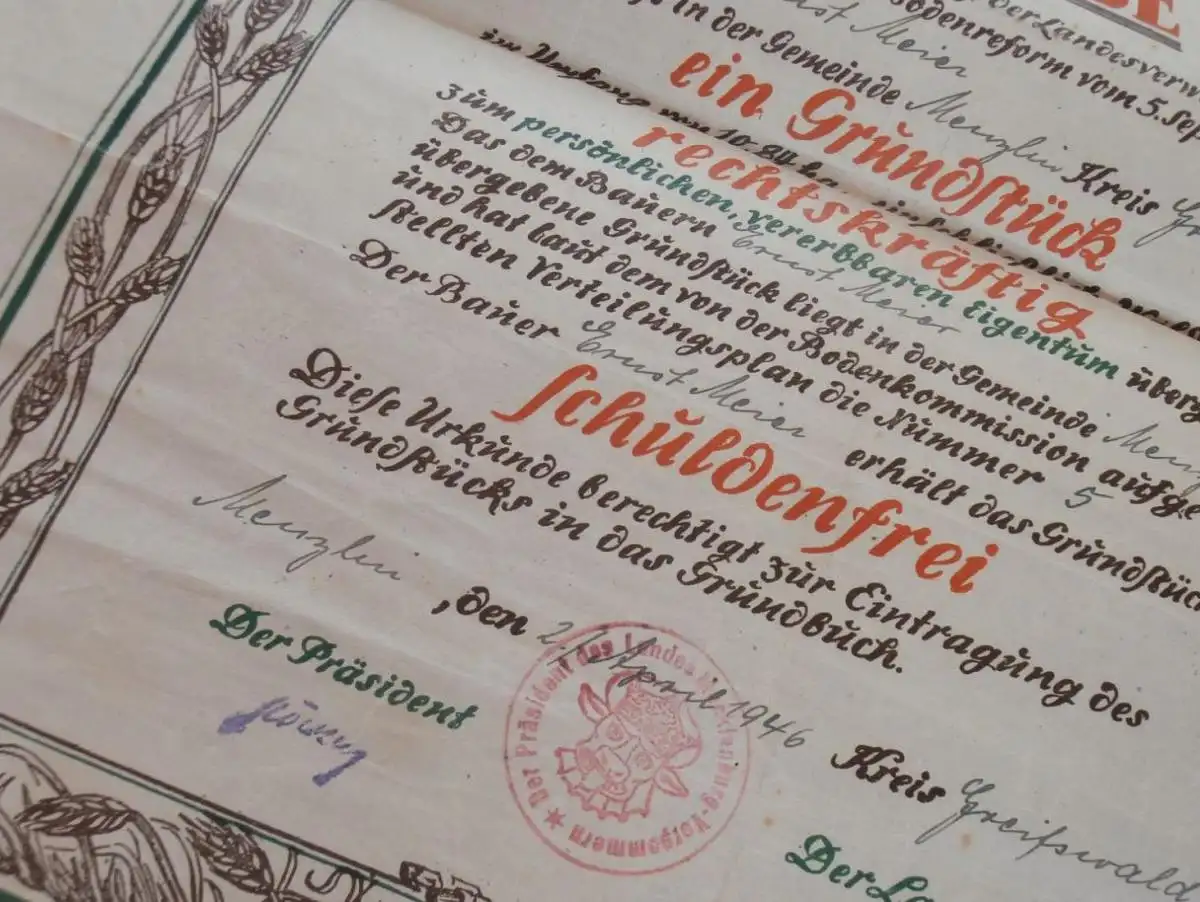 der Landesverw
Ernst Meier
Bodenreform vom 5. Sep
in der Gemeinde Menzlin Kreis
ein Grundstück
rechtskräftig
zum persönlichen, vererbbaren Eigentum überg
Das dem Bauern Ernst Meier
übergebene Grundstück liegt in der Gemeinde
und hat laut dem von der Bodenkommission aufge
stellten Verteilungsplan die Nummer 5
Der Bauer Ernst Meier erhält das Grundstück
schuldenfrei
Diese Urkunde berechtigt zur Eintragung des
Grundstücks in das Grundbuch.
Menzlin, den April 1946
Kreis Greifswald
Der Präsident
Der La
Der Präsident des Landes Mecklenburg-Vorpommern